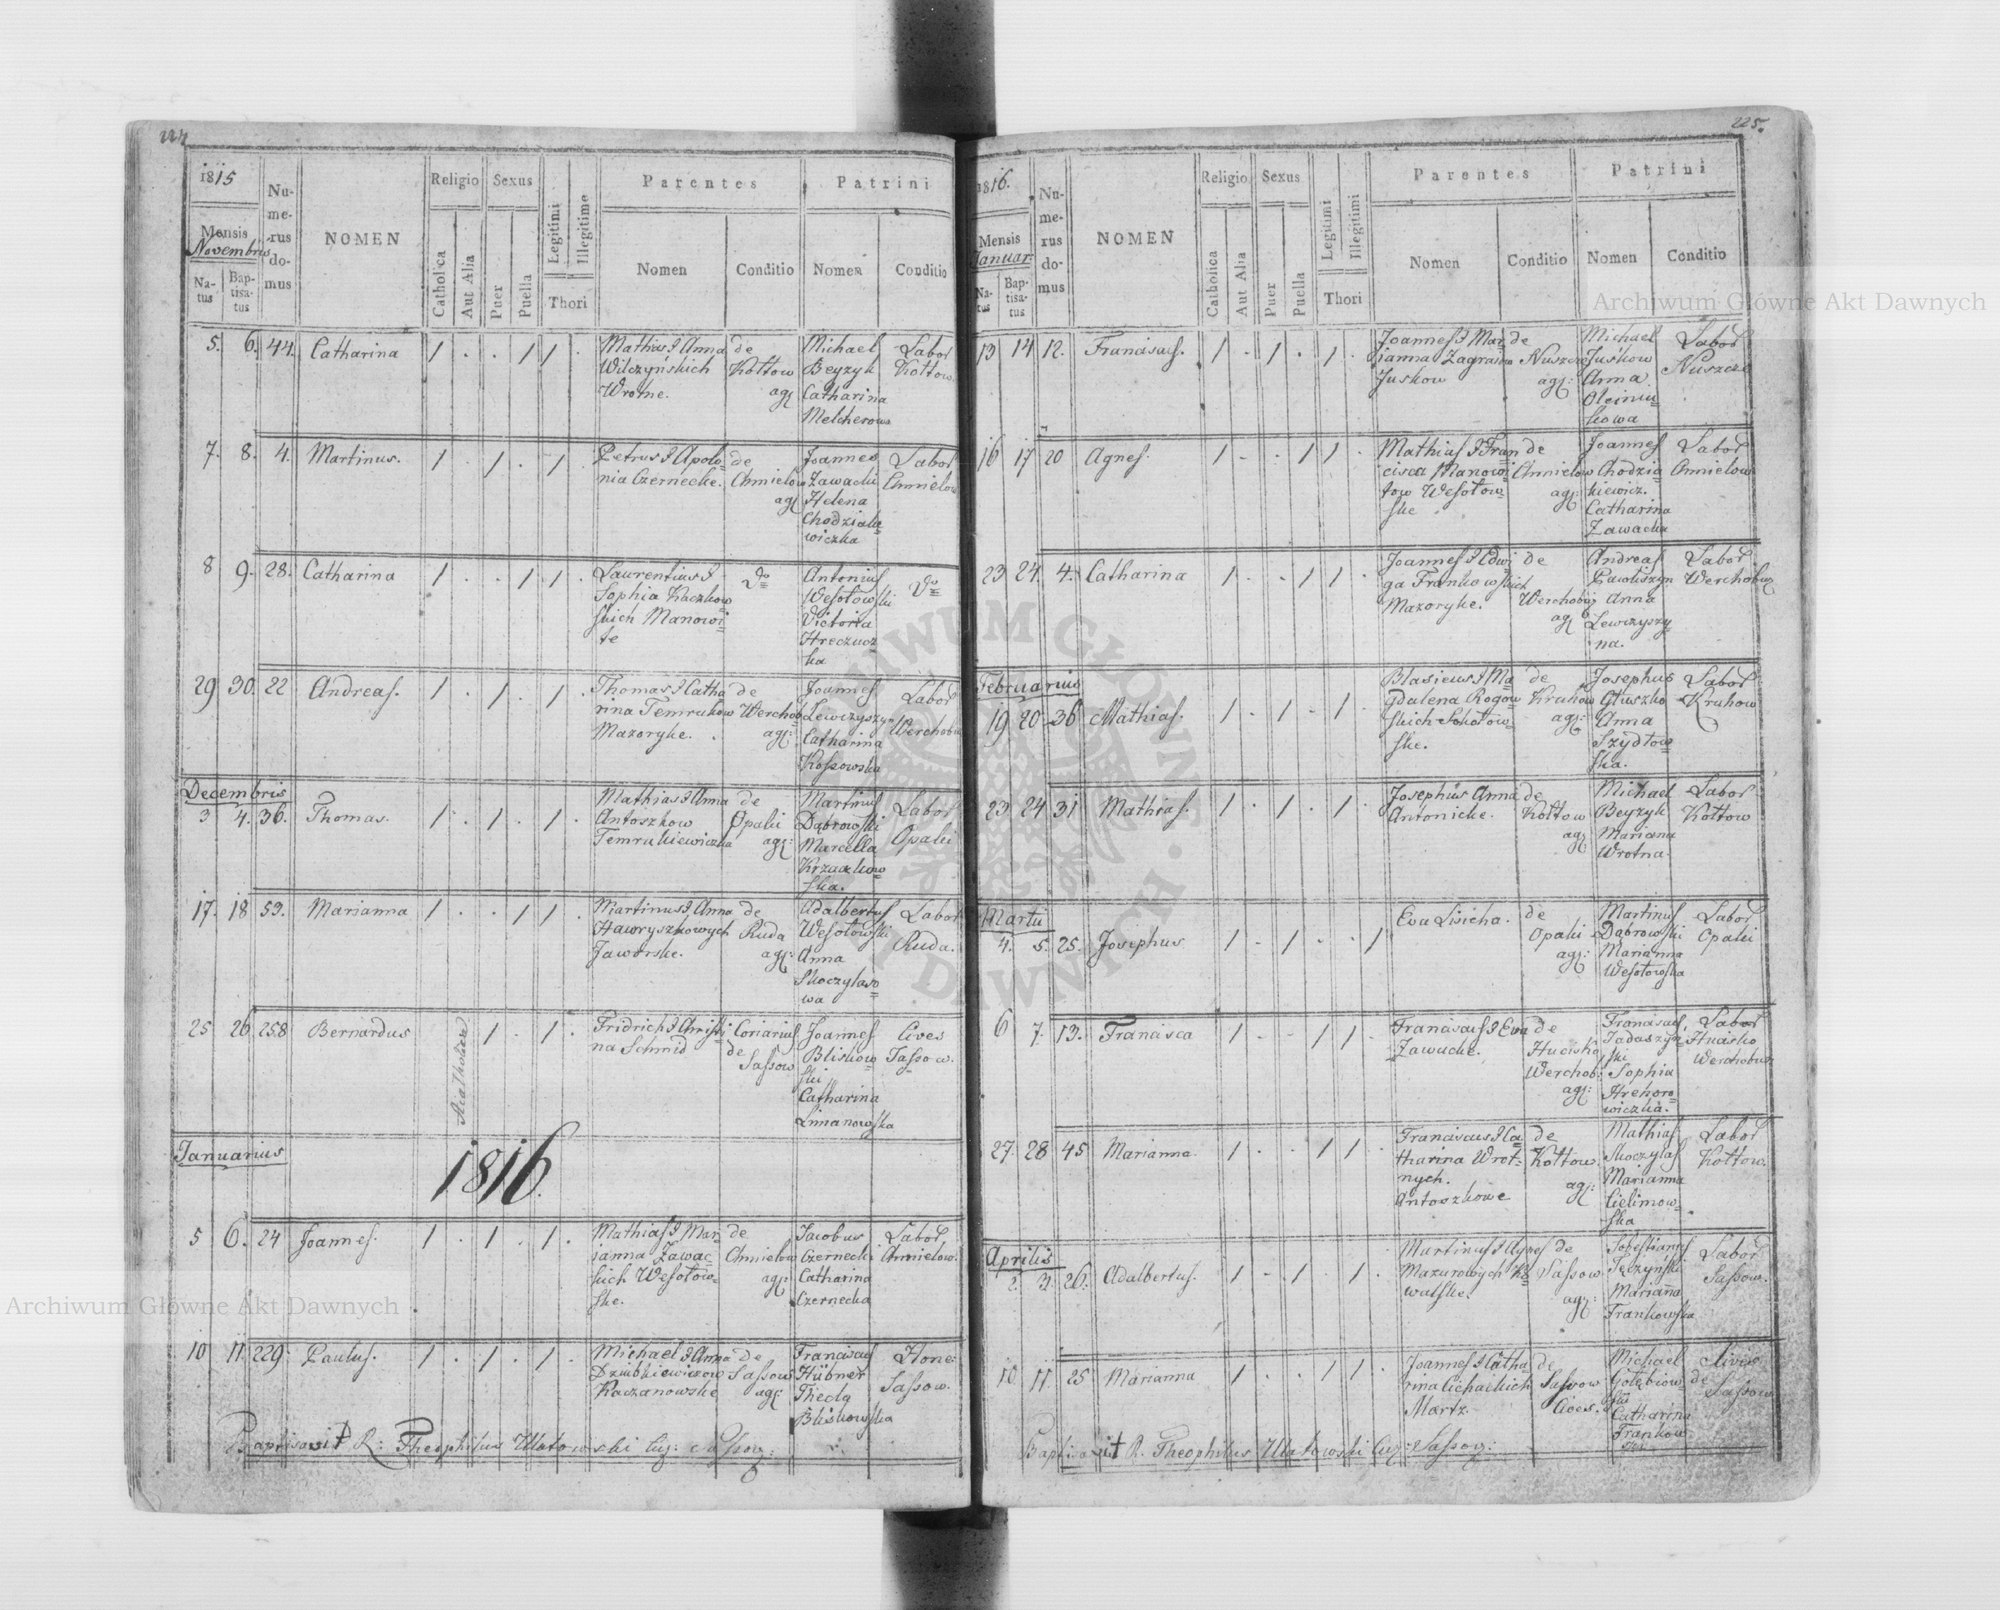 224
1815
Mensis
Novembris
Natus
Baptisatus
Numerus domus
NOMEN
Religio
Catholica
Aut Alia
Sexus
Puer
Puella
Legitimi
Illegitime
Thori
Parentes
Nomen
Conditio
Patrini
Nomen
Conditio
5. 6. 44. Catharina 1 . . 1 1 .
Mathias & Anna
Wilczyńskich
Wrotne.
de
Kołtow
agr:
Michael
Beyzyk
Catharina
Melcherowa
Labor
Kołtow
7. 8. 4. Martinus. 1 . 1 . 1 .
Petrus & Apolo=
nia Czernecke.
de
Chmielow
agr:
Joannes
Zawacki
Helena
Chodziake=
wiczka
Labor
Chmielow
8 9. 28. Catharina 1 . . 1 1 .
Laurentius &
Sophia Kaczkow
skich Manowi=
te
do
Antonius
Wesołowski
Victoria
Hreczucz=
ka
do
29 30. 22 Andreas. 1 . 1 . 1 .
Thomas & Catha
rina Temrukow
Mazoryke.
de
Werchob
agr:
Joannes
Lewczyszyn
Catharina
Kossowska
Labor
Werchobuz
Decembris
3 4. 36. Thomas. 1 . 1 . 1 .
Mathias & Anna
Antoszkow
Temrukiewiczka
de
Opaki
agr:
Martinus
Dąbrowski
Marcella
Krzaczkow=
ska.
Labor
Opaki
17. 18 59. Marianna 1 . . 1 1 .
Martinus & Anna
Hawryszkowych
Jaworske.
de
Ruda
agr:
Adalbertus
Wesołowski
Anna
Skoczylaso=
wa
Labor
Ruda.
25 26 258 Bernardus
Acatholica
1 . 1 .
Fridrich & Christi
na Schmid
Coriarius
de
Sassow
Joannes
Bliskow=
ski
Catharina
Limanowska
Cives
Sassow.
Januarius
1816.
5 6. 24 Joannes. 1 . 1 . 1 .
Mathias & Mar
ianna Zawac=
kich Wesołow=
ske.
de
Chmielow
agr:
Jacobus
Czernecki
Catharina
Czernecka
Labor
Chmielow.
10 11. 229. Paulus. 1 . 1 . 1 .
Michael & Anna
Dziubkiewiczow
Kaczanowske
de
Sassow
agr:
Franciscus
Hübner
Thecla
Bliskowska
Hone:
Sassow.
Baptisavit R: Theophilus Ulatowski
225.
1816.
Mensis
Januar
Natus
Baptisatus
Numerus domus
NOMEN
Religio
Catholica
Aut Alia
Sexus
Puer
Puella
Legitimi
Illegitimi
Thori
Parentes
Nomen
Conditio
Patrini
Nomen
Conditio
13 14 12. Franciscus. 1 . 1 . 1 .
Joannes & Mar
ianna Zagraiow
Juskow
de
Nuszcze
agr:
Michael
Juskow
Anna
Oleinni=
kowa
Labor
Nuszcze
16 17 20 Agnes. 1 . . 1 1 .
Mathias & Fran
cisca Manowi
tow Wesołow=
ske
de
Chmielow
agr:
Joannes
Chodzia
kiewicz.
Catharina
Zawacka
Labor
Chmielow
23 24. 4. Catharina 1 . . 1 1 .
Joannes & Edwi
ga Frankowskich
Mazoryke.
de
Werchobuz
agr:
Andreas
Pawliszyn
Anna
Lewczyszy=
na.
Labor
Werchobuz
Februarius
19 20 36 Mathias. 1 . 1 . 1 .
Blasieus & Ma
gdalena Rogow
skich Sokołow=
ske.
de
Kruhow
agr:
Josephus
Głuszko
Anna
Szydłow=
ska.
Labor
Kruhow
23 24 31 Mathias. 1 . 1 . 1 .
Josephus Anna
Antonicke.
de
Kołtow
agr:
Michael
Beyzyk
Mariana
Wrotna.
Labor
Kołtow
Martii
4. 5. 25. Josephus 1 . 1 . . 1
Eva Lisicha.
de
Opaki
agr:
Martinus
Dąbrowski
Marianna
Wesołowska
Labor
Opaki
6 7. 13. Francisca 1 . . 1 1 .
Franciscus & Eva
Zawacke.
de
Hucisko
Werchob:
agr:
Franciscus
Sophia
Hrehoro=
wiczka.
Labor
Hucisko
Werchobuz
27. 28 45 Marianna. 1 . . 1 1 .
Franciscus & Ca
tharina Wrot=
nych.
Antoszkowe
de
Kołtow
agr:
Mathias
Skoczylas
Marianna
Cielimow=
ska
Labor
Kołtow.
Aprilis
2. 3. 26. Adalbertus. 1 . 1 . 1 .
Martinus & Agnes
Mazurowych Ko
walske.
de
Sassow
agr:
Sebestianus
Tęczyński
Marianna
Frankowska
Labor
Sassow.
10 11. 25 Marianna 1 . . 1 1 .
Joannes & Catha
rina Cichackich
Martz.
de
Sassow
Cives.
Michael
Gołębiow=
ski
Catharina
Frankow=
ska
Cives
de
Sassow
Baptisavit R. Theophilus Ulatowski
Archiwum Główne Akt Dawnych
Archiwum Główne Akt Dawnych
ARCHIWUM GŁÓWNE AKT DAWNYCH